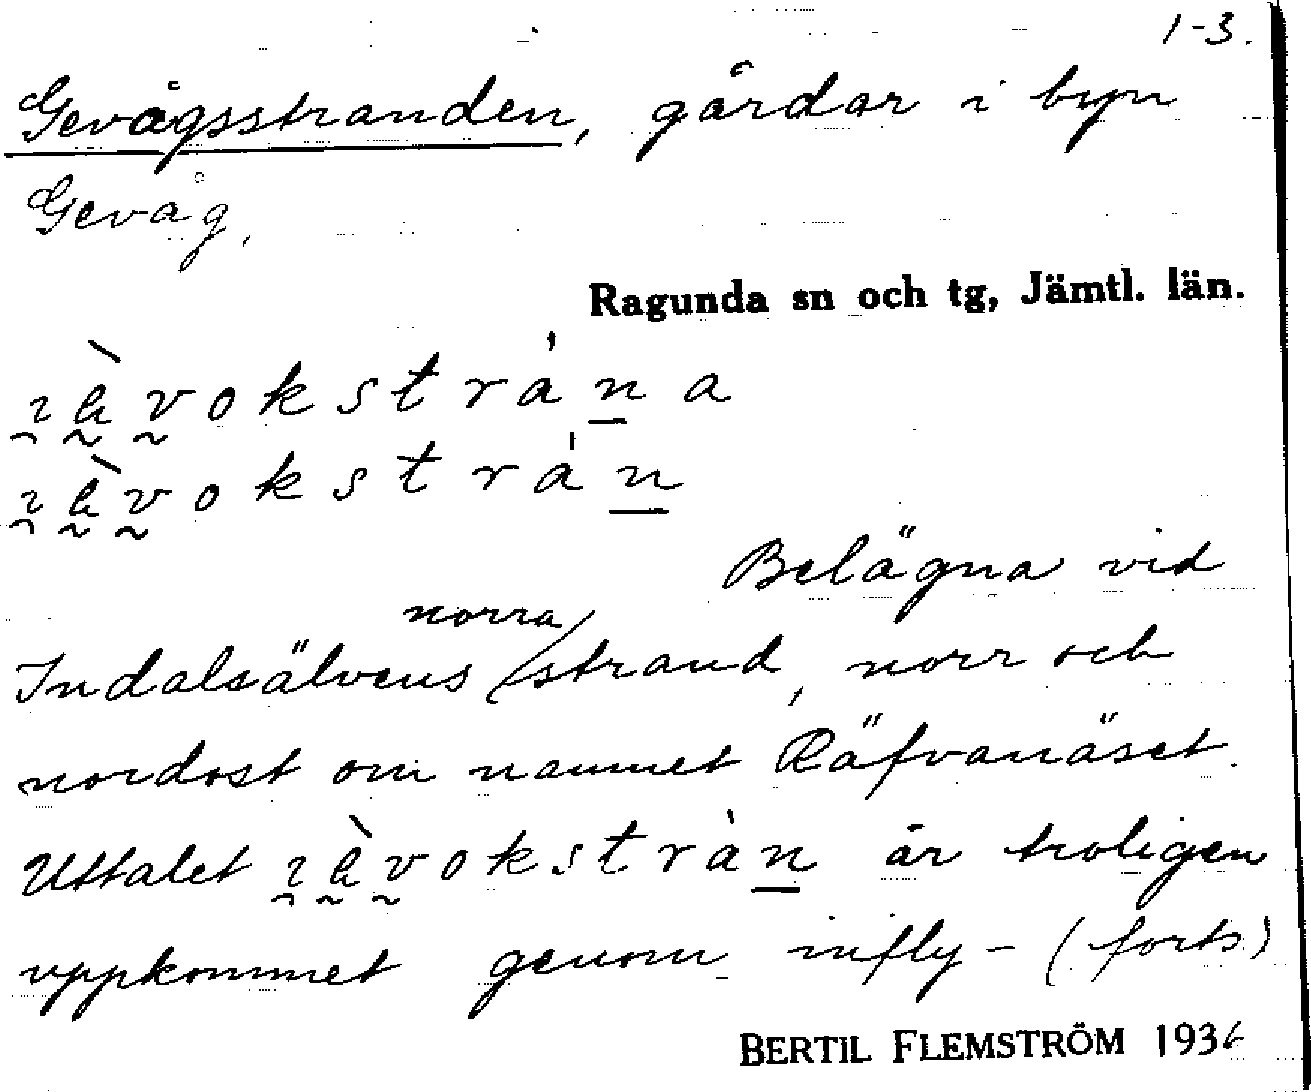 1-3.
Gevågsstranden, gårdar i byn
Gevåg.
Ragunda sn och tg, Jämtl. län.
Belägna vid
norra
Indalsälvens strand, norr och
nordost om namnet Räfvanäset.
Uttalet är troligen
uppkommet genom infly- (forts)
BERTIL FLEMSTRÖM 1936